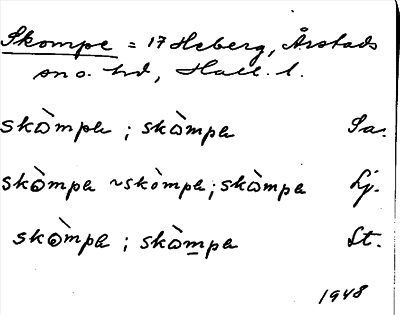 Skompe = 17 Heberg, Årstads
sn o. hd, Hall. l.
skòmpa ; skòmpa Sa.
skòmpa ~ skòmpa ; skòmpa Lj.
skòmpa ; skòmpa St.
1948